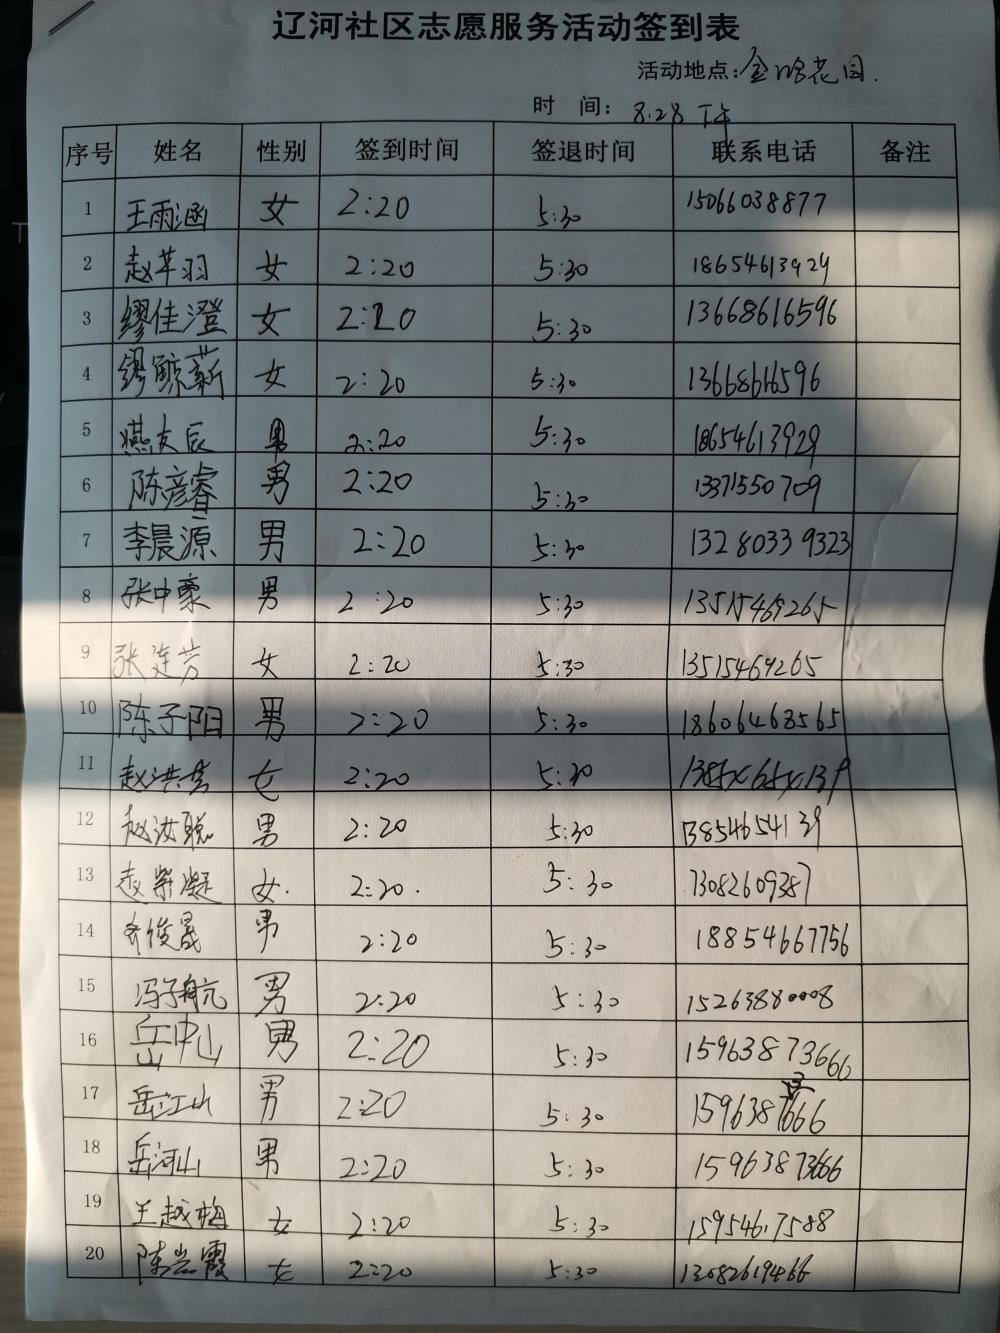 辽河社区志愿服务活动签到表
活动地点:金晗花园.
时 间: 8.28 下午
序号 姓名 性别 签到时间 签退时间 联系电话 备注
1 王雨涵 女 2:20 5:30 15066038877
2 赵苹羽 女 2:20 5:30 18654613929
3 缪佳澄 女 2:20 5:30 13668616596
4 缪鲸薪 女 2:20 5:30 13668616596
5 燕友辰 男 2:20 5:30 18654613929
6 陈彦睿 男 2:20 5:30 13371550709
7 李晨源 男 2:20 5:30 13280339323
8 张中豪 男 2:20 5:30 13515469265
9 张连芳 女 2:20 5:30 13515469265
10 陈子阳 男 2:20 5:30 18606468565
11 赵洪秀 女 2:20 5:30
12 赵汝聪 男 2:20 5:30 13854654139
13 赵紫凝 女. 2:20. 5:30 13082609387
14 齐俊晟 男 2:20 5:30 18854667756
15 冯子航 男 2:20 5:30 15263880008
16 岳中山 男 2:20 5:30 15963873666
17 岳江山 男 2:20 5:30 15963873666
18 岳河山 男 2:20 5:30 15963873666
19 王越梅 女 2:20 5:30 15954617588
20 陈岩霞 女 2:20 5:30 13082619466